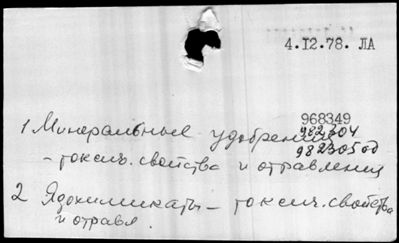 4.12.78. ЛА
968349
982304
98230500
1 Минеральные удобрения
- токсич. свойства и отравления
2 Ядохимикаты - токсич. свойства
и отравл.